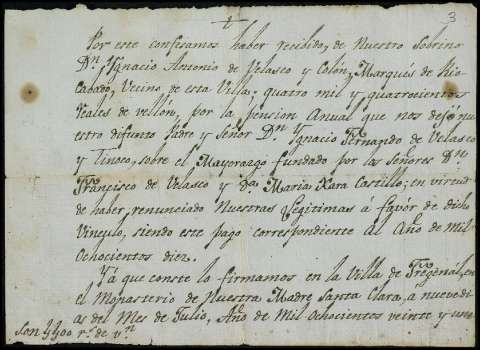 3
Por este confesamos haber recibido, de Nuestro Sobrino
Dn. Ygnacio Antonio de Velasco y Colón, Marqués de Rio-
Cabado, Vecino de esta Villa; quatro mil y quatrocientos
Reales de vellón, por la pension Anual que nos dejó nu-
estro difunto Padre y Señor Dn. Ygnacio Fernando de Velasco
y Tinoco, sobre el Mayorazgo fundado por los Señores Dn.
Francisco de Velasco y Da. Maria Xara Castillo; en virtud
de haber renunciado Nuestras Legitimas á favor de dicho
Vinculo, siendo este pago correspondiente al Año de Mil
Ochocientos diez.
Y á que conste lo firmamos en la Villa de Fregenál, en
el Monasterio de Nuestra Madre Santa Clara, a nueve di-
as del Mes de Julio, Año de Mil Ochocientos veinte y uno
Son 4400 rs. de vn.